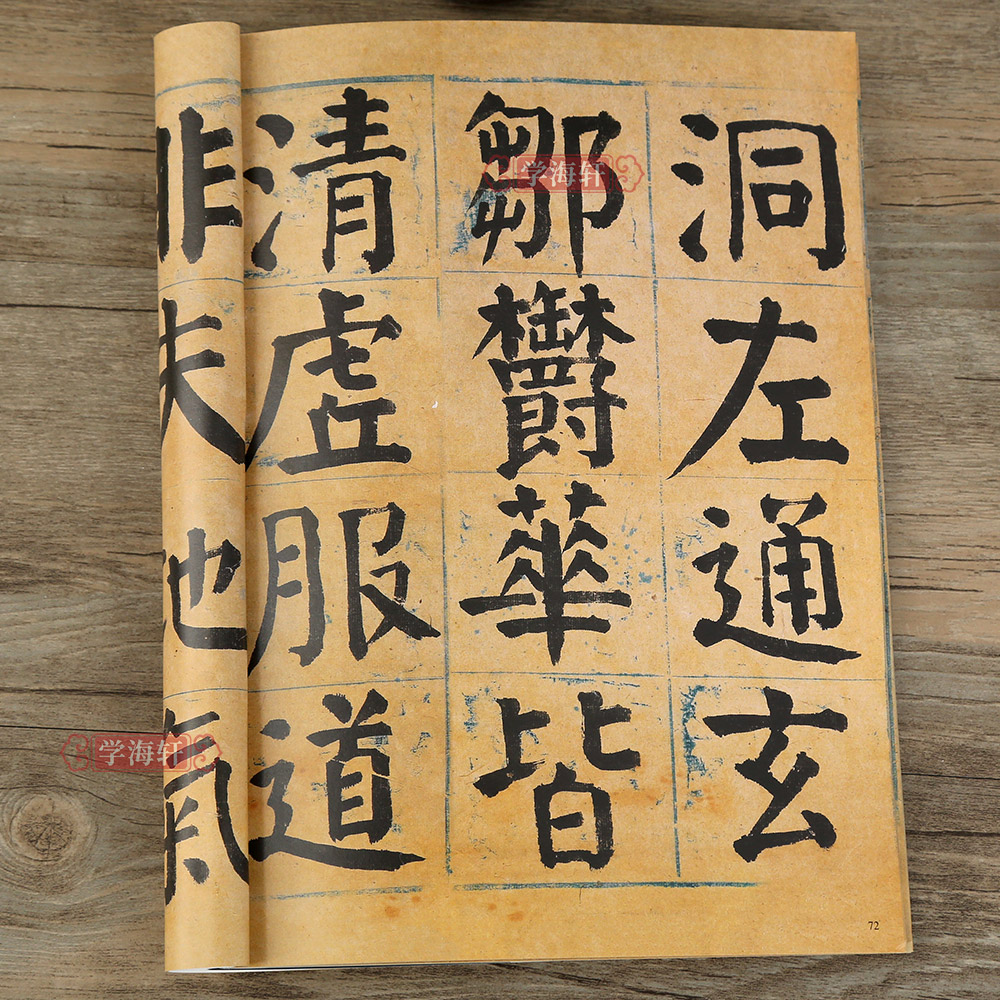 洞左通玄
鄒鬱華皆
清虗服道
非氣
学海轩
学海轩
72